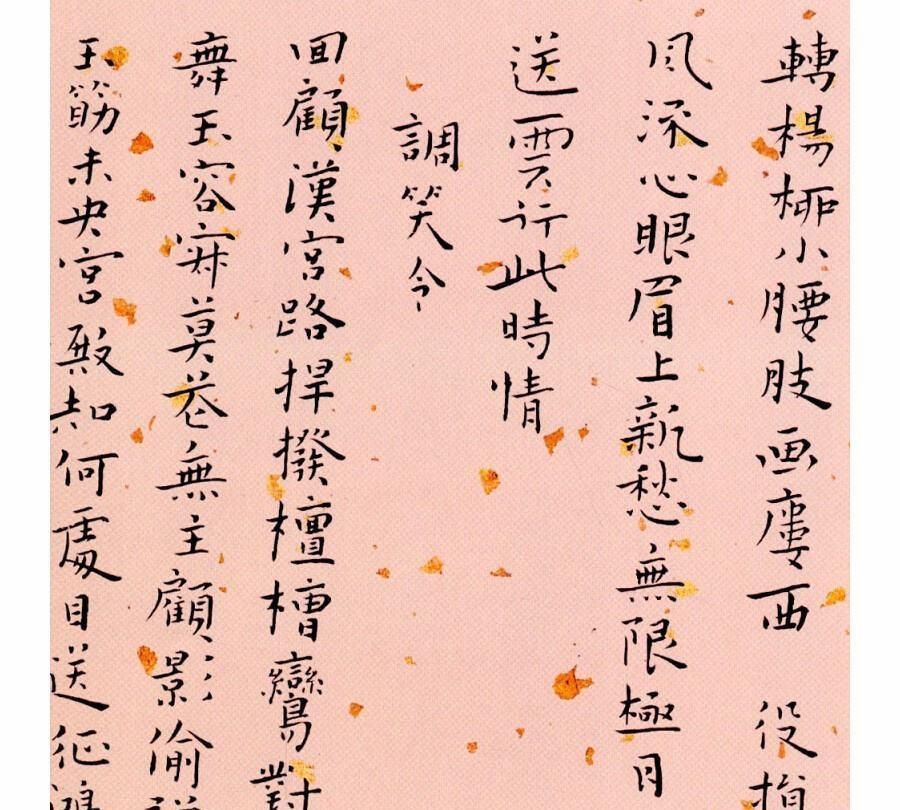 轉楊栁小腰肢画廔西 役損
風流心眼眉上新愁無限極目
送雲行此時情
調笑令
回顧漢宮路捍撥檀槽鸞對
舞玉容寂莫花無主顧影偷
玉筯未央宮殿知何處目送征鴻